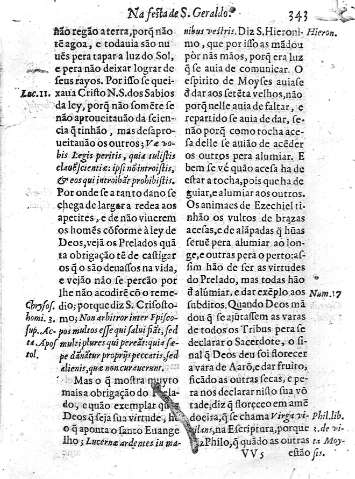 Na festa de S. Geraldo.
343
não regão a terra, porq̃ não
tẽ agoa, e todauia são nu
uẽs pera tapar a luz do Sol,
e pera não deixar lograr de
seus rayos. Por isso se quei-
Luc. 11.
xaua Cristo N. S. dos Sabios
da ley, porq̃ não somẽte se
não aproueitauão da scien-
cia q̃ tinhão, mas desapro-
ueitauão os outros; Væ vo-
bis Legis peritis, quia tulistis
clauẽ scientiæ: ipsi nõ introistis,
& eos qui introibãt prohibistis.
Por onde se a tanto dano se
chega de largar a redea aos
apetites, e de não viuerem
os homẽs cõforme à ley de
Deos, vejã os Prelados quã
ta obrigação tẽ de castigar
os q̃ o são denassos na vida,
e vejão não se percão por
Chrysos.
lhe não acodirẽ cõ o reme-
homi. 3.
dio; porque diz S. Crisosto-
sup. Ac-
mo; Non arbitror inter Episco-
ta Apos
pos multos esse qui salui fiãt, sed
tol.
multi plures qui pereãt: quia sæ-
pe dãnãtur proprijs peccatis, sed
alienis, quæ non curauerunt.
Mas o q̃ mostra muyto
mais a obrigação do Prela-
do, e quão exemplar quer
Deos q̃ seja sua virtude, he
o q̃ aponta o santo Euange
lho; Lucernæ ardentes in ma-
nibus vestris. Diz S. Hieroni-
Hieron.
mo, que por isso as mãdou
por nàs mãos, porq̃ era luz
q̃ se auia de comunicar. O
espirito de Moyses auia se
dar aos setẽta velhos, não
porq̃ nelle auia de faltar, e
repartido se auia de dar, se-
não porq̃ como tocha ace-
sa delle se auião de acẽder
os outros pera alumiar. E
bem se vè quão acesa ha de
estar a tocha, pois que ha de
guiar, e alumiar aos outros.
Os animaes de Ezechiel ti-
nhão os vultos de brazas
acesas, e de alãpadas q̃ hũas
serué pera alumiar ao lon-
ge, e outras pera o perto: as-
sim hão de ser as virtudes
do Prelado, mas todas hão
đ alumiar, e dar exẽplo aos
Num. 17
subditos. Quando Deos mã
dou q̃ se ajutassem as varas
de todos os Tribus pera se
declarar o Sacerdote, o si-
nal q̃ Deos deu foi florecer
a vara de Aarõ, e dar fruito,
ficãdo as outras secas, e pe-
ra nos declarar nisto sua võ
tade, diz q̃ florecẽo em amẽ
doeira, q̃ se chama Virga vi-
Phil. lib.
gilans, na Escriptura, porque
2. de vi-
Philo, q̃ quãdo as outras
ta Moy-
VV 5
estão
sis.